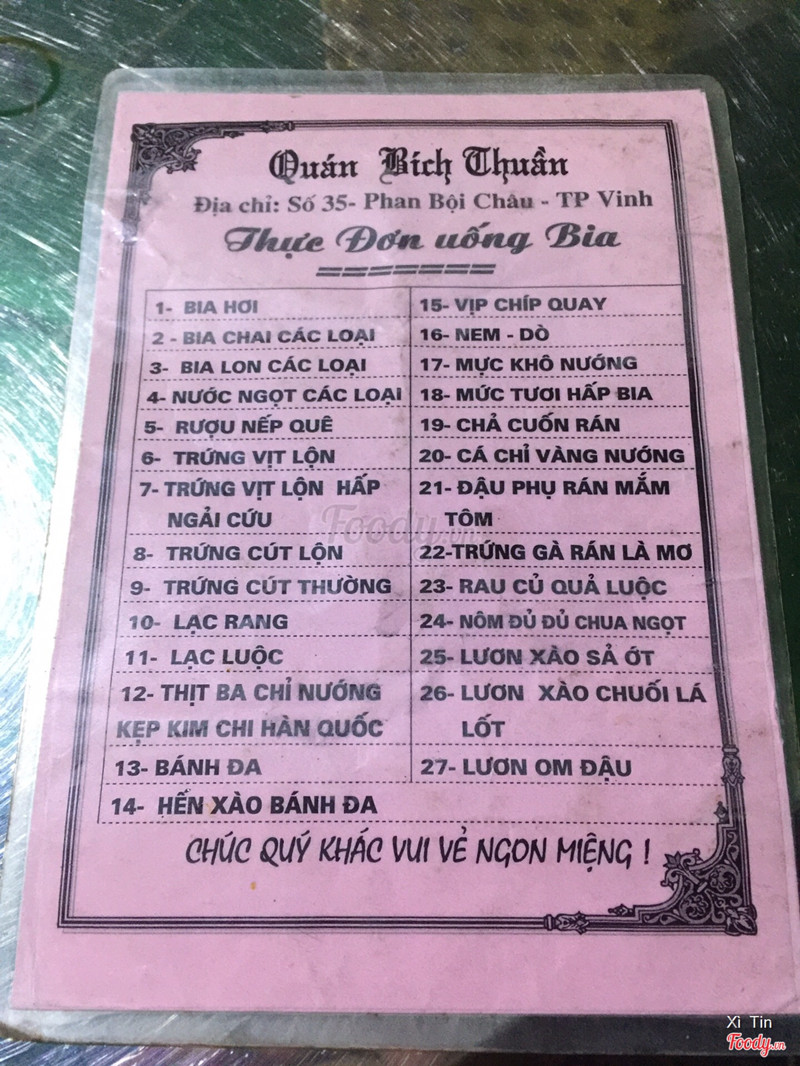 Quán Bích Thuần
Địa chỉ: Số 35- Phan Bội Châu - TP Vinh
Thực Đơn uống Bia
=======
1- BIA HƠI
2 - BIA CHAI CÁC LOẠI
3- BIA LON CÁC LOẠI
4- NƯỚC NGỌT CÁC LOẠI
5- RƯỢU NẾP QUÊ
6- TRỨNG VỊT LỘN
7- TRỨNG VỊT LỘN HẤP
NGẢI CỨU
8- TRỨNG CÚT LỘN
9- TRỨNG CÚT THƯỜNG
10- LẠC RANG
11- LẠC LUỘC
12- THỊT BA CHỈ NƯỚNG
KẸP KIM CHI HÀN QUỐC
13- BÁNH ĐA
14- HẾN XÀO BÁNH ĐA
15- VỊP CHÍP QUAY
16- NEM - DÒ
17- MỰC KHÔ NƯỚNG
18- MỨC TƯƠI HẤP BIA
19- CHẢ CUỐN RÁN
20- CÁ CHỈ VÀNG NƯỚNG
21- ĐẬU PHỤ RÁN MẮM
TÔM
22-TRỨNG GÀ RÁN LÀ MƠ
23- RAU CỦ QUẢ LUỘC
24- NÔM ĐỦ ĐỦ CHUA NGỌT
25- LƯƠN XÀO SẢ ỚT
26- LƯƠN XÀO CHUỐI LÁ
LỐT
27- LƯƠN OM ĐẬU
CHÚC QUÝ KHÁC VUI VẺ NGON MIỆNG !
Foody.vn
Xì Tin
Foody.vn